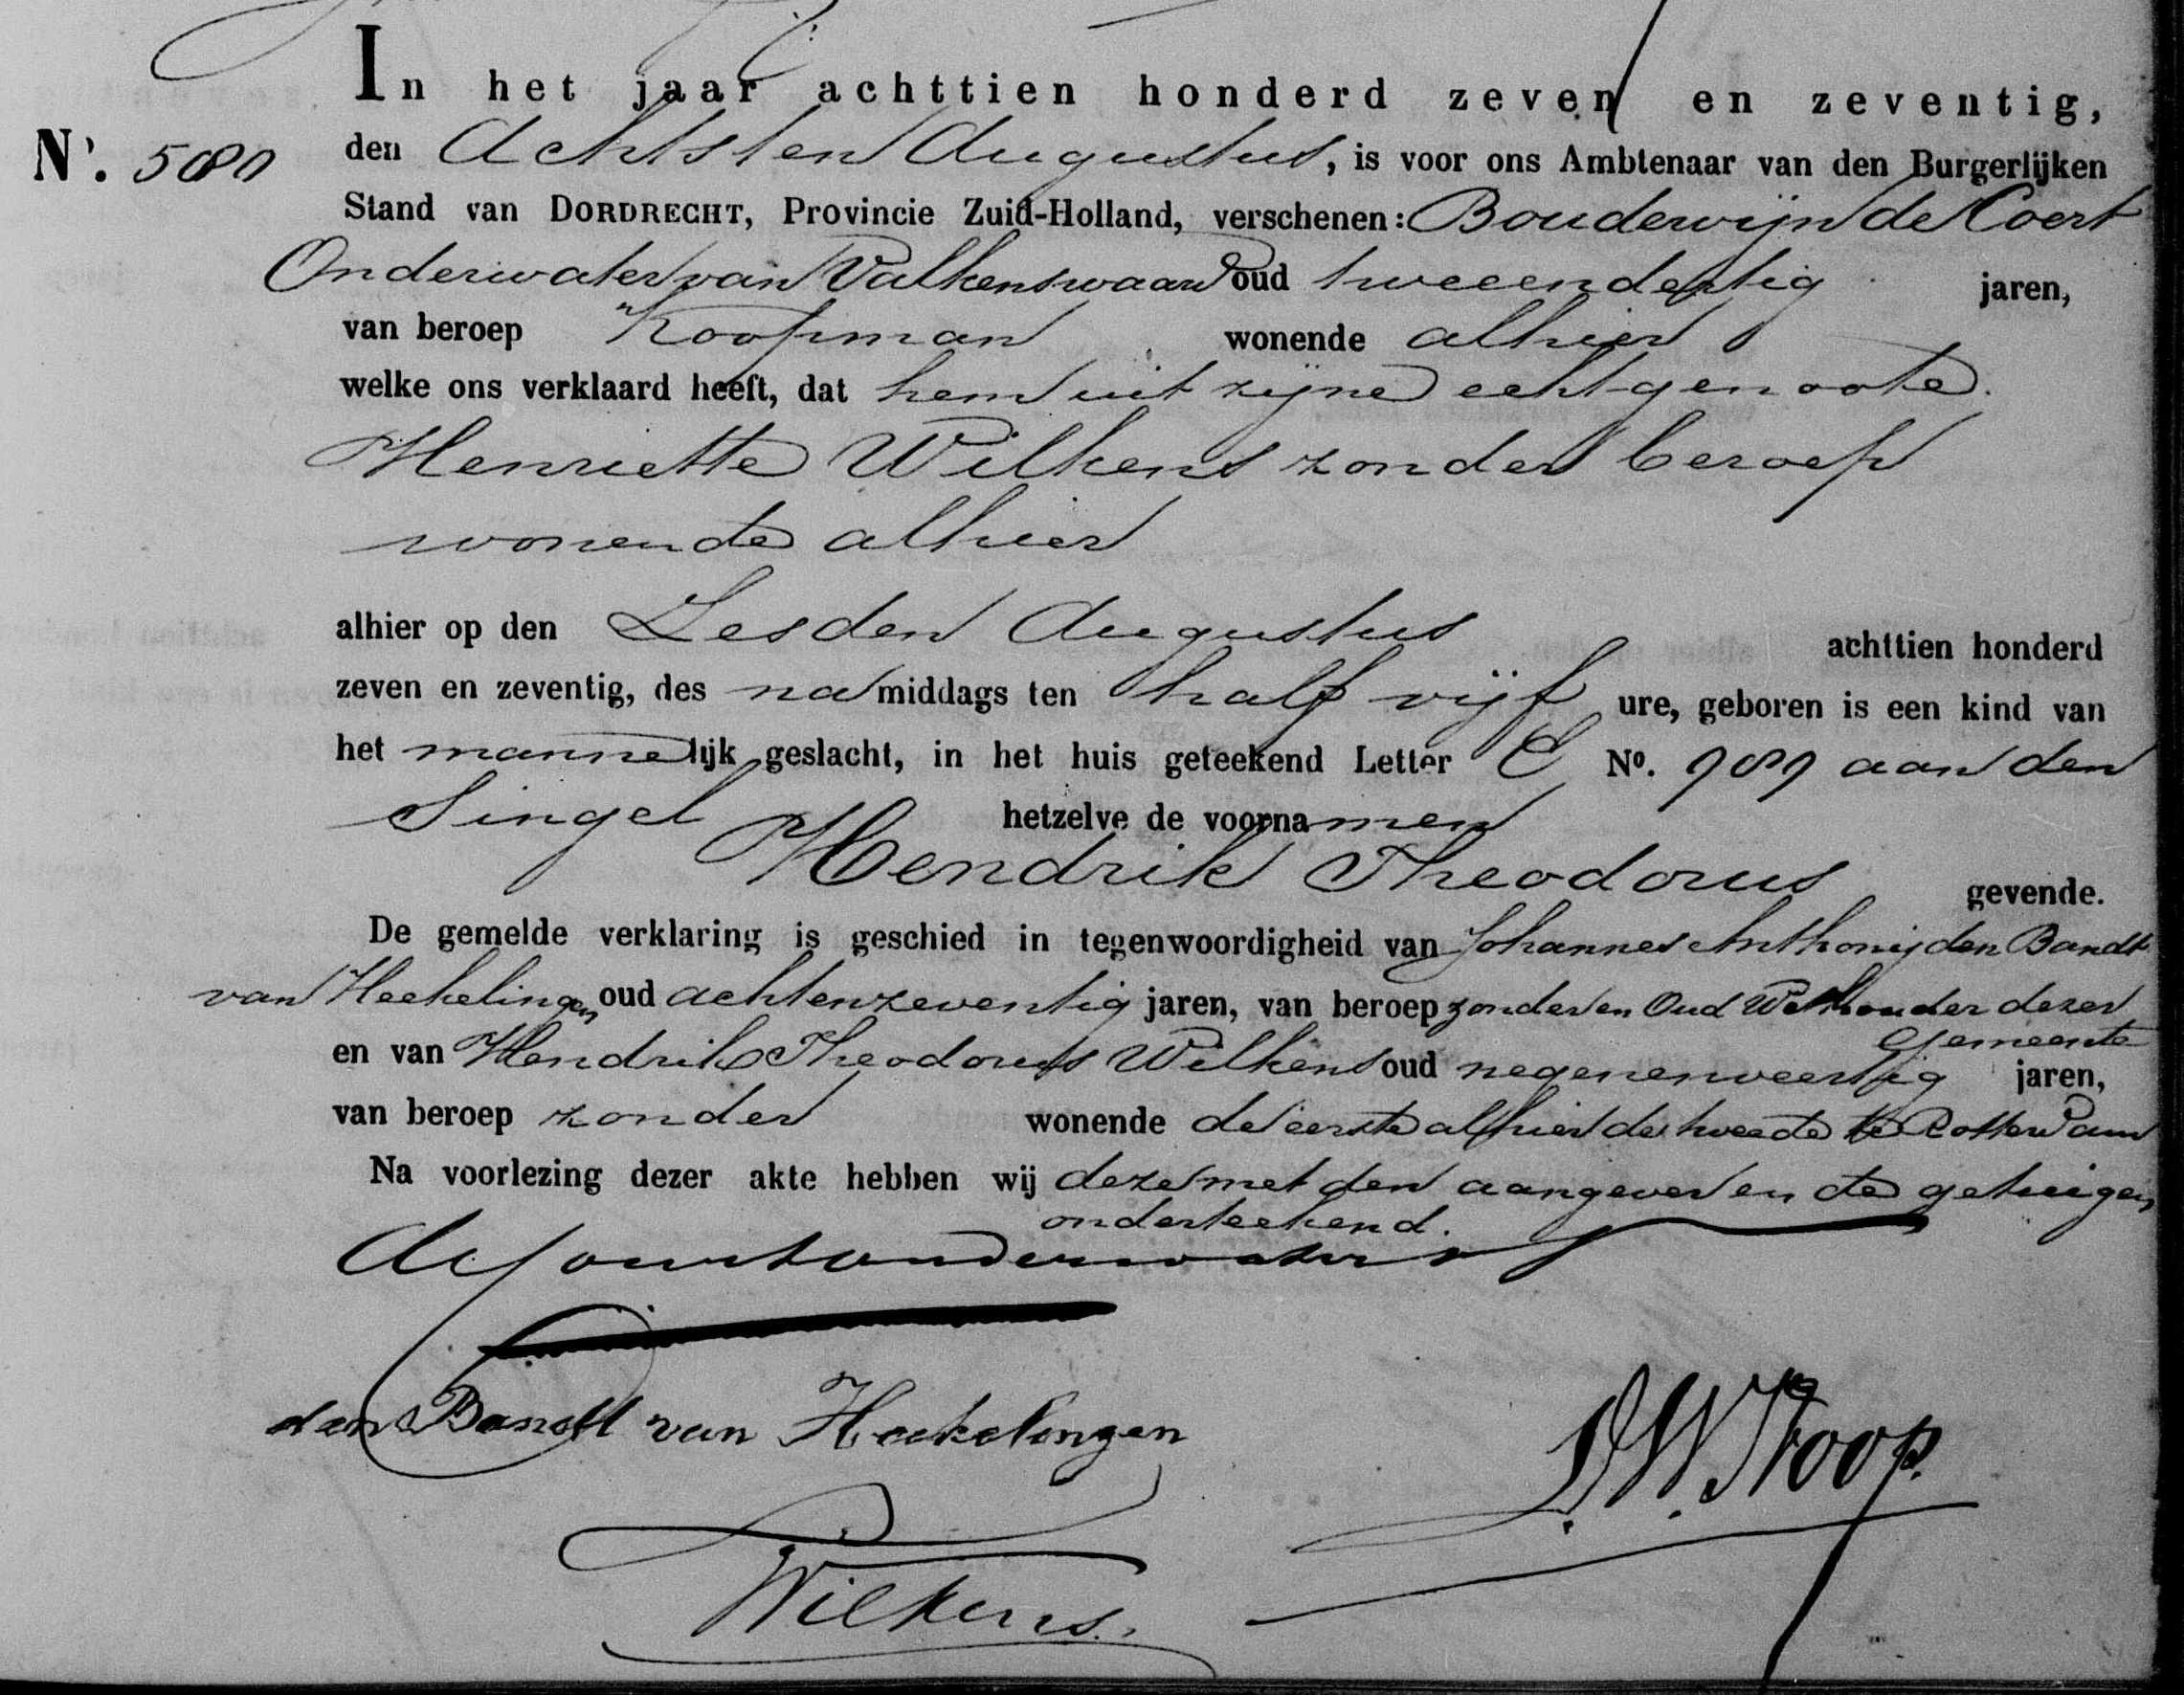 In het jaar achttien honderd zeven en zeventig,
N°. 580 den Achtsten Augustus, is voor ons Ambtenaar van den Burgerlijken
Stand van DORDRECHT, Provincie Zuid-Holland, verschenen: Boudewijn de Coert
Onderwater van Valkenswaard oud tweeendertig jaren,
van beroep Koopman wonende alhier
welke ons verklaard heeft, dat hem uit zijne echtgenoote
Henriette Wilkens zonder beroep
wonende alhier
alhier op den Zesden Augustus achttien honderd
zeven en zeventig, des na middags ten half vijf ure, geboren is een kind van
het mannelijk geslacht, in het huis geteekend Letter C No. 989 aan den
Singel hetzelve de voornamen
Hendrik Theodorus gevende.
De gemelde verklaring is geschied in tegenwoordigheid van Johannes Anthonij den Bandt
van Heekelingen oud achtenzeventig jaren, van beroep zonder en Oud Wethouder dezer
Gemeente
en van Hendrik Theodorus Wilkens oud negenenveertig jaren,
van beroep zonder wonende de eerste alhier de tweede te Rotterdam
Na voorlezing dezer akte hebben wij deze met den aangever en de getuigen
onderteekend.
den Bandt van Heekelingen
Wilkens.
Stoop.